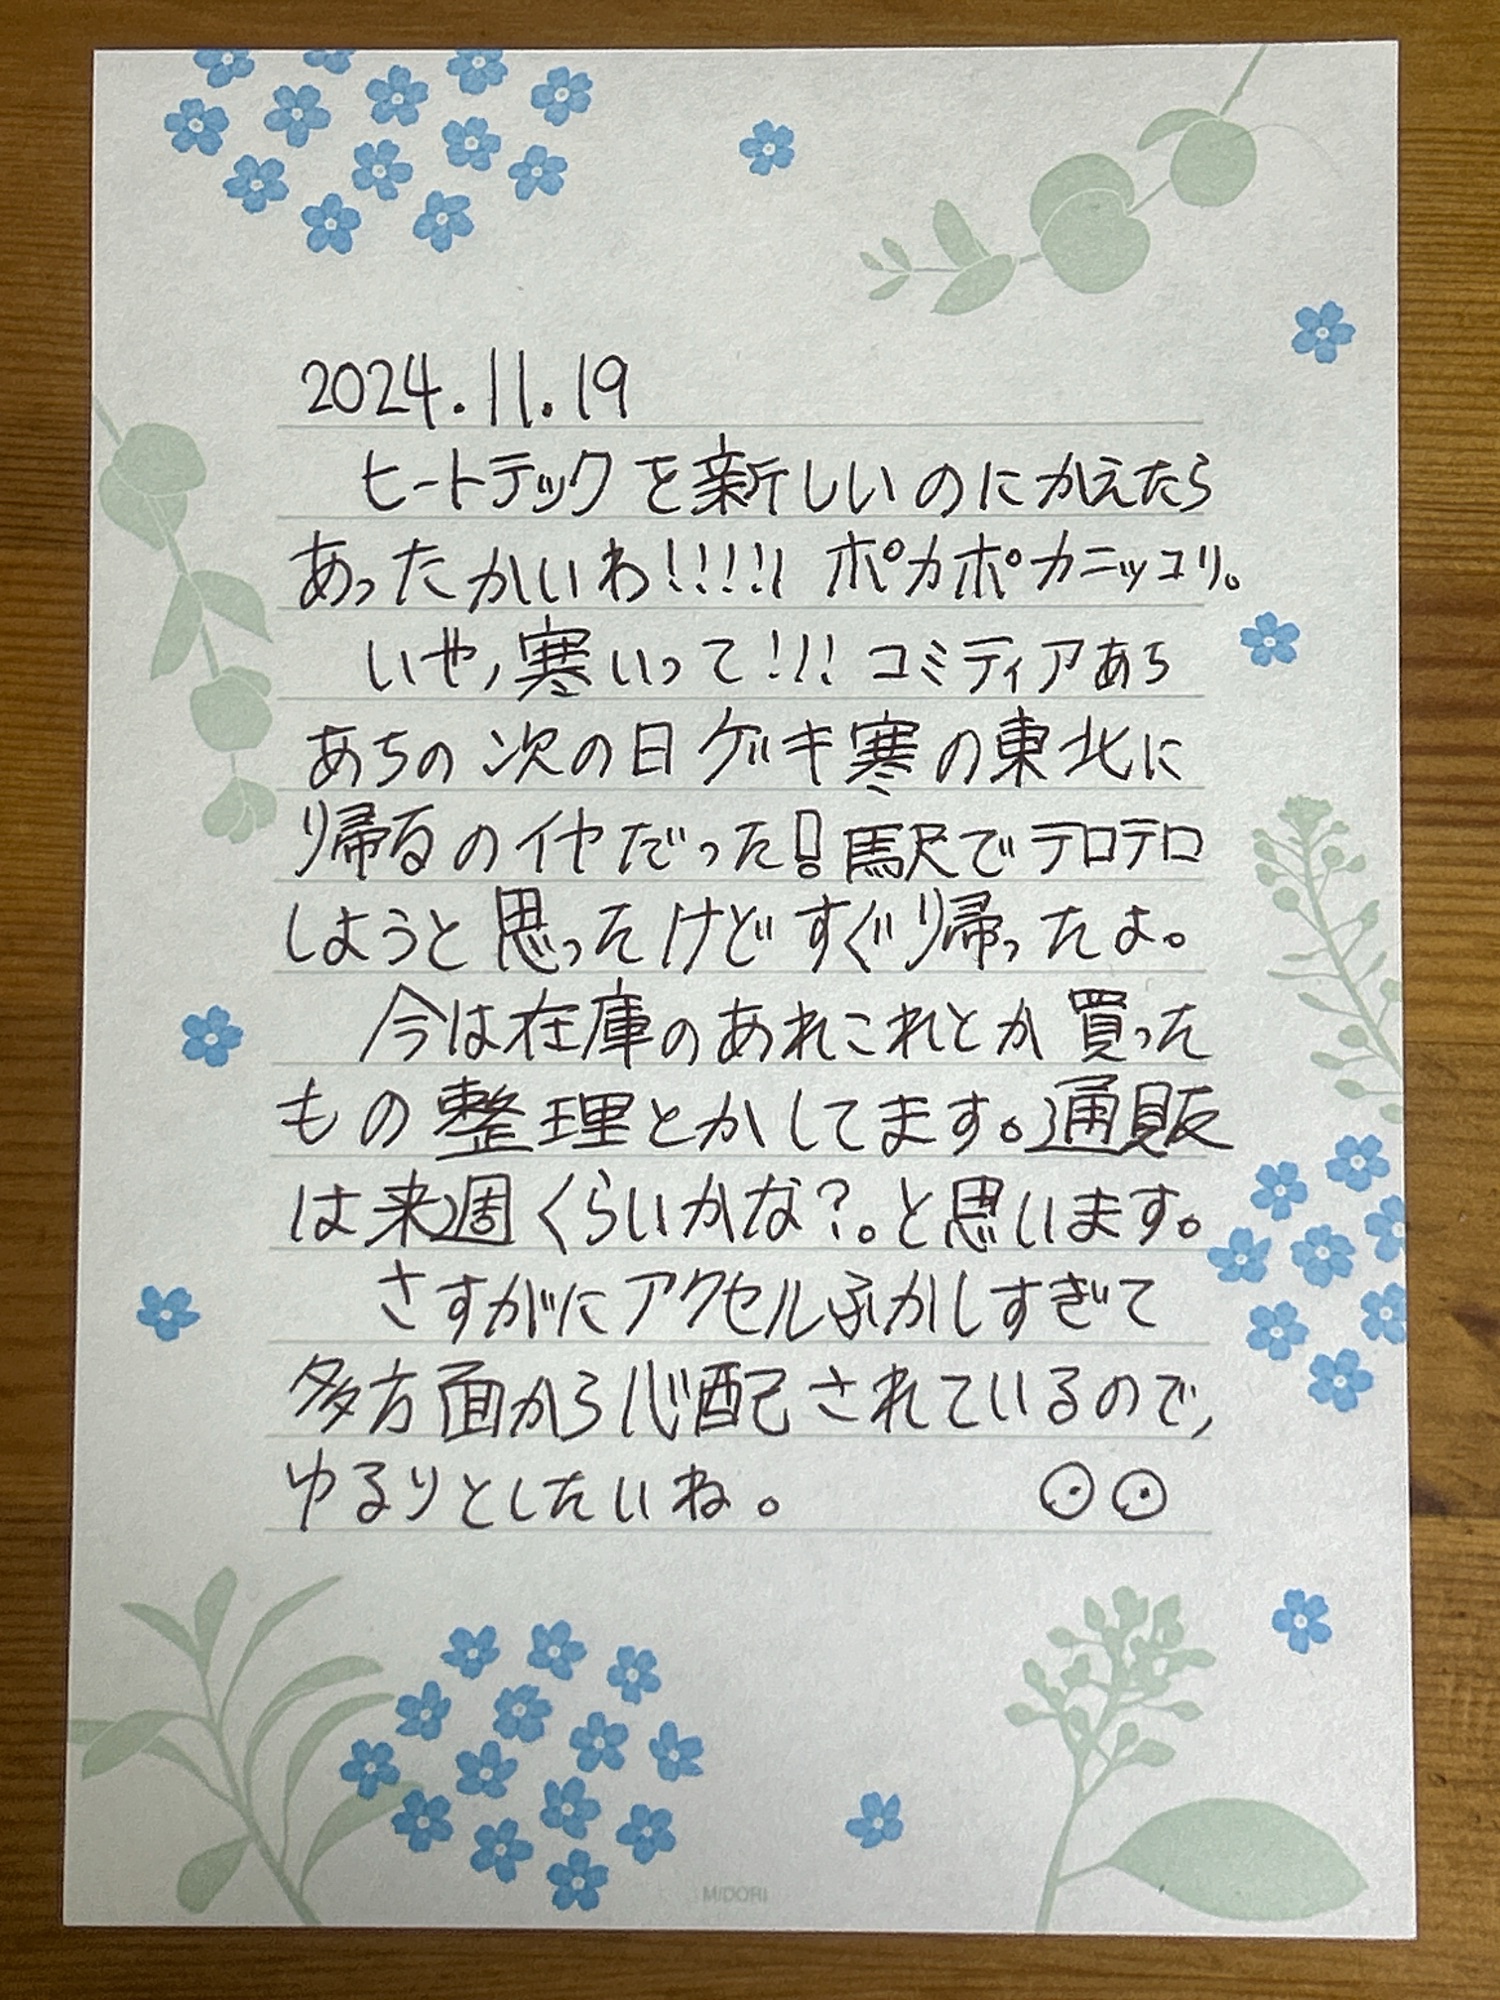 2024.11.19
ヒートテックを新しいのにかえたら
あったかいわ!!!!! ポカポカニッコリ。
いや,寒いって!!! コミティアあち
あちの次の日ゲキ寒の東北に
帰るのイヤだった!駅でテロテロ
しようと思ったけどすぐ帰ったよ。
今は在庫のあれこれとか買った
もの整理とかしてます。通販
は来週くらいかな?。と思います。
さすがにアクセルふかしすぎて
多方面から心配されているので,
ゆるりとしたいね。
MIDORI